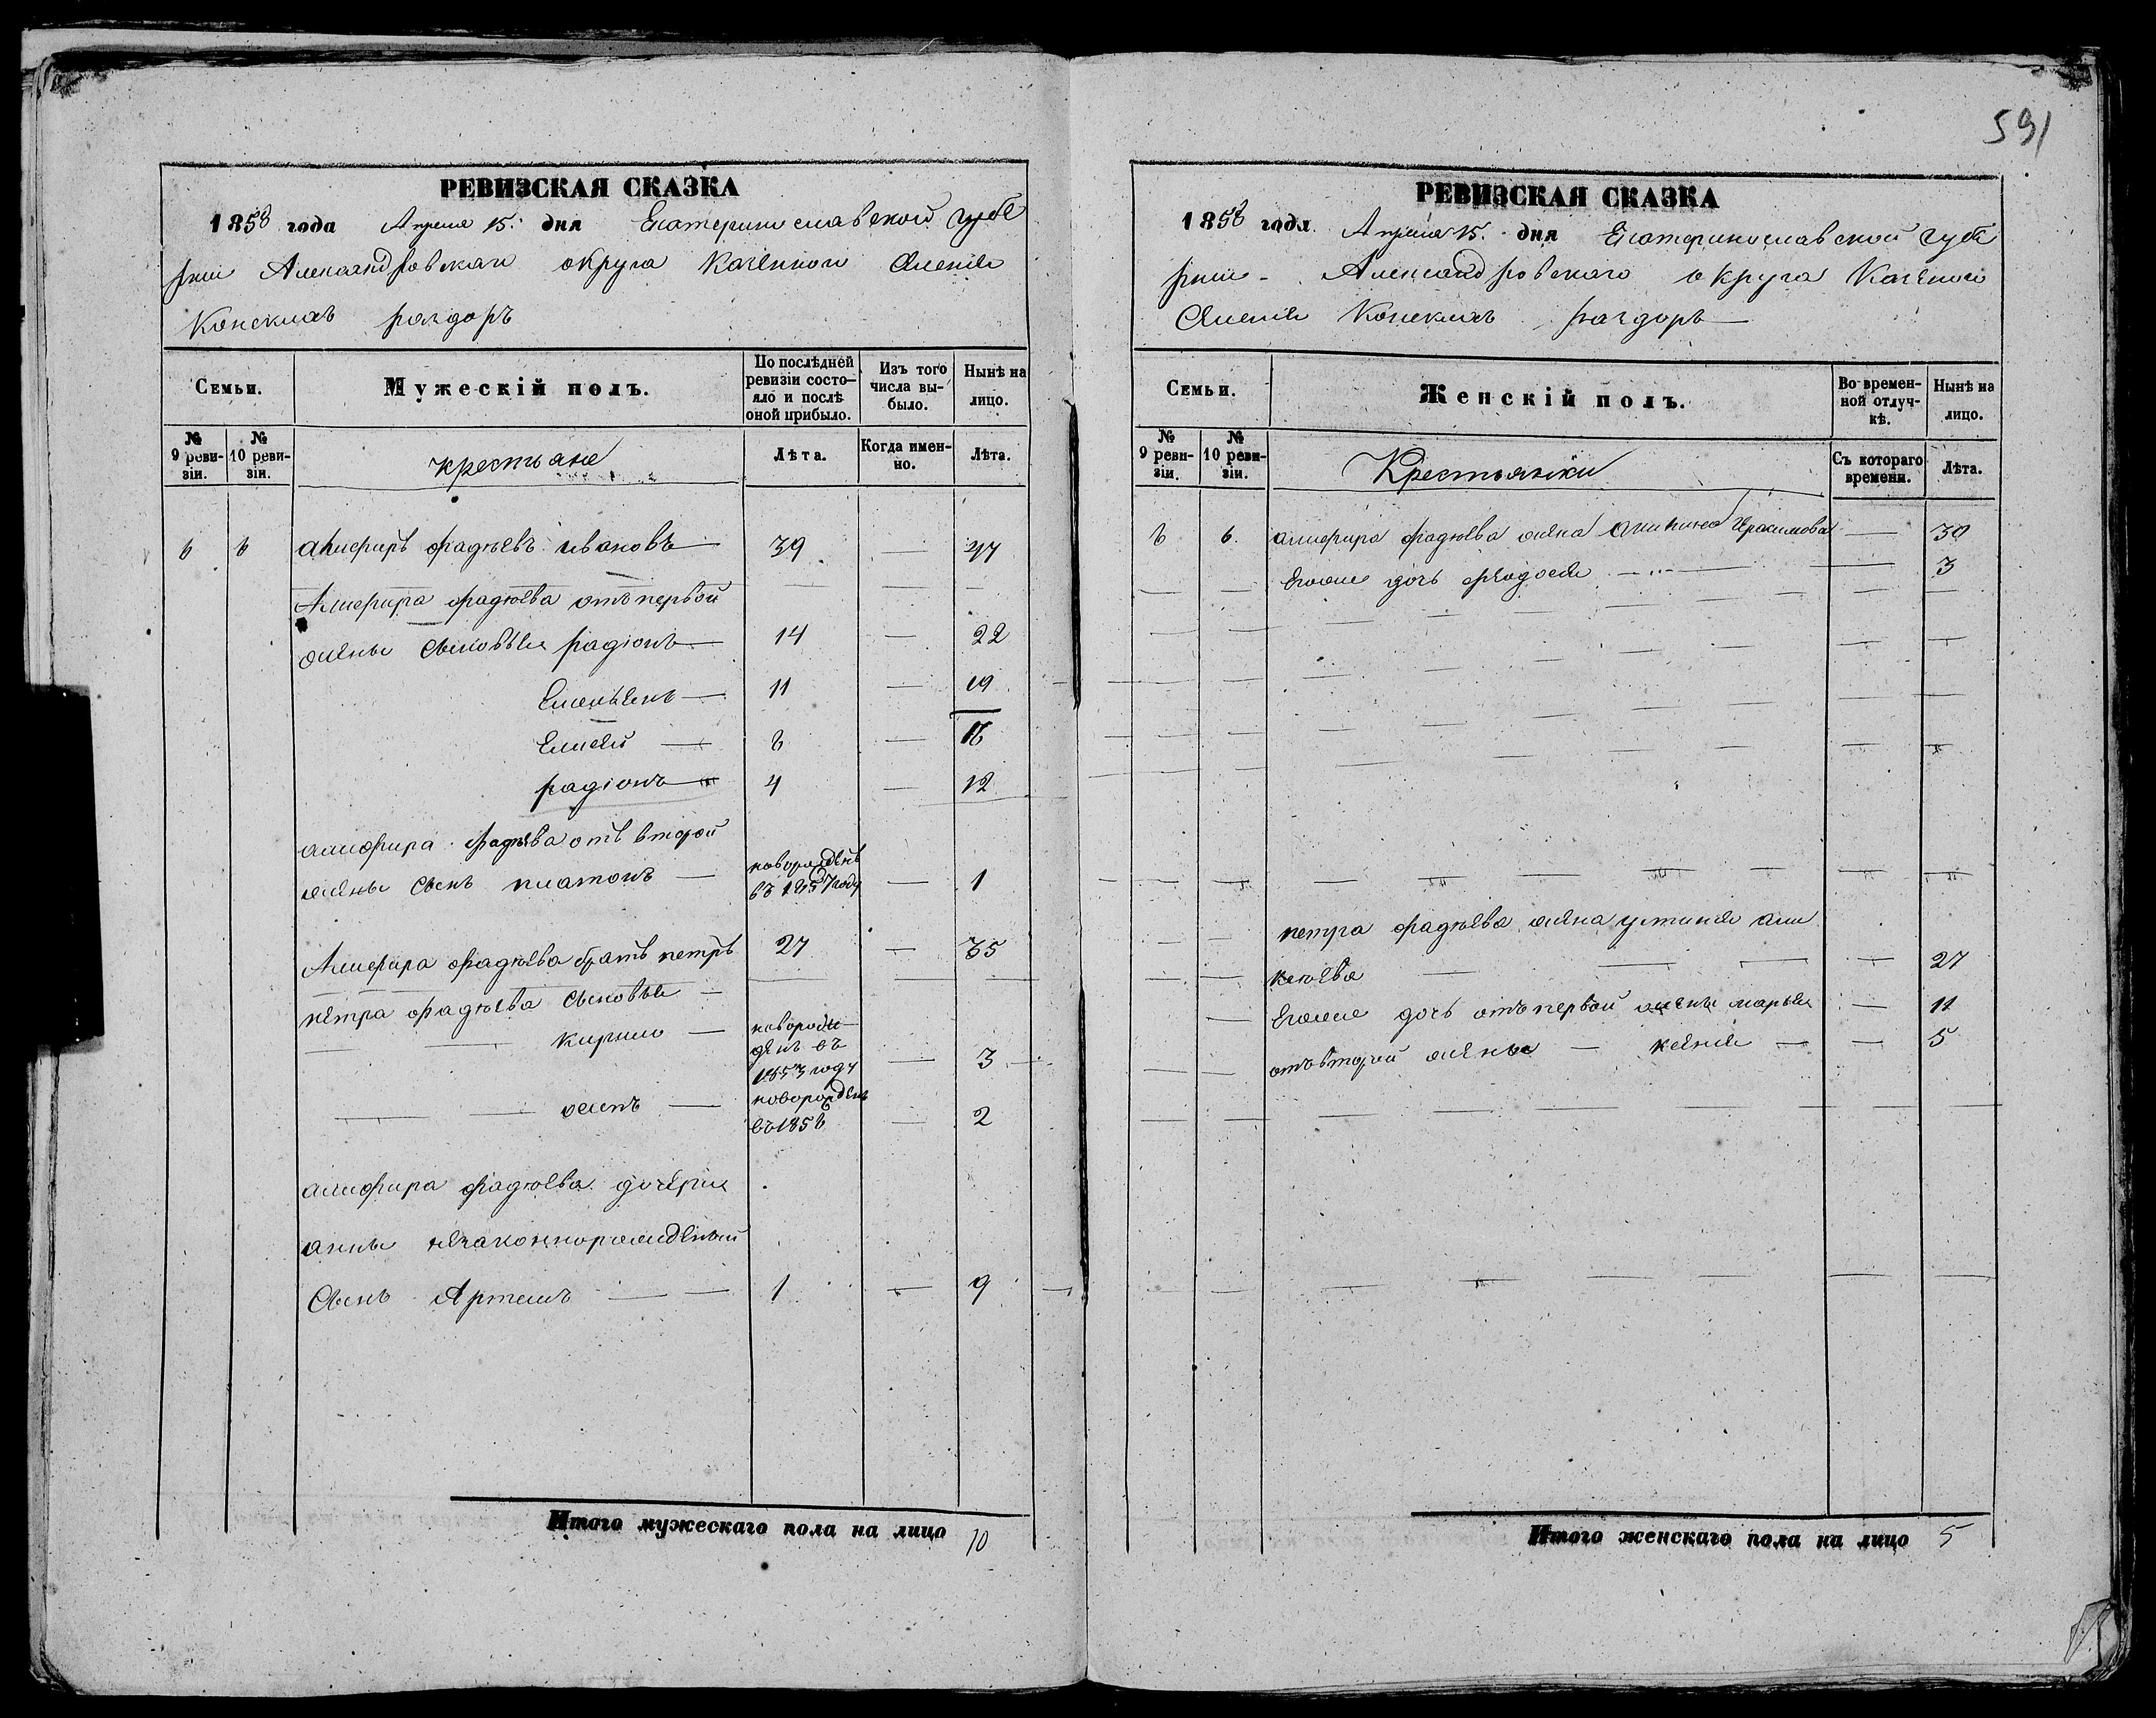 591
РЕВИЗСКАЯ СКАЗКА
1858 года Апреля 15. дня Екатеринославской губе
рніи Александровскаго округа Казенной
Конскихъ раздоръ
Семьи.
Мужескій полъ.
По послѣдней ревизіи состояло и послѣ оной прибыло.
Изъ того числа выбыло.
Нынѣ на лицо.
№ 9 ревизіи.
№ 10 ревизіи.
крестьяне
Лѣта.
Когда именно.
Лѣта.
6 6 алиферъ фадѣевъ ивановъ 39 47
Алифира фадѣева отъ первой
жены сыновья радіонъ 14 22
Емельенъ 11 19
Елисей 8 16
радіонъ 4 12
алифира фадѣева отъ второй
жены сынъ платонъ новорожденъ въ 1857 году 1
Алифира фадѣева братъ петръ 27 35
петра фадѣева сыновья
кирило новорожденъ въ 1853 году 3
осипъ новорожденъ въ 1856 2
алифира фадѣева дочери
анны незаконнорожденый
Сынъ Артемъ 1 9
Итого мужескаго пола на лицо 10
РЕВИЗСКАЯ СКАЗКА
1858 года Апреля 15. дня Екатеринославской губе
рніи Александровскаго округа Казеной
Конскихъ раздоръ
Семьи.
Женскій полъ.
Во временной отлучкѣ.
Нынѣ на лицо.
№ 9 ревизіи.
№ 10 ревизіи.
Крестьянки
Съ котораго времени.
Лѣта.
6 6. алифира фадѣева жена Герасимова 30
Егоже дочь феодосія 3
петра фадѣева жена устинія але
ксѣева 27
Егоже дочь отъ первой жены марья 11
отъ второй жены ксенія 5
Итого женскаго пола на лицо 5